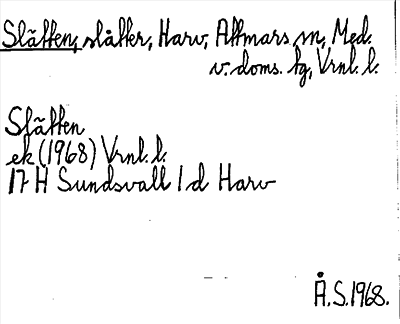 Slätten, slåtter, Harv, Attmars sn, Med.
v. doms. tg, Vrnl. l.
Slätten
ek (1968) Vrnl. l.
17 H Sundsvall 1 d Harv
Å.S. 1968.